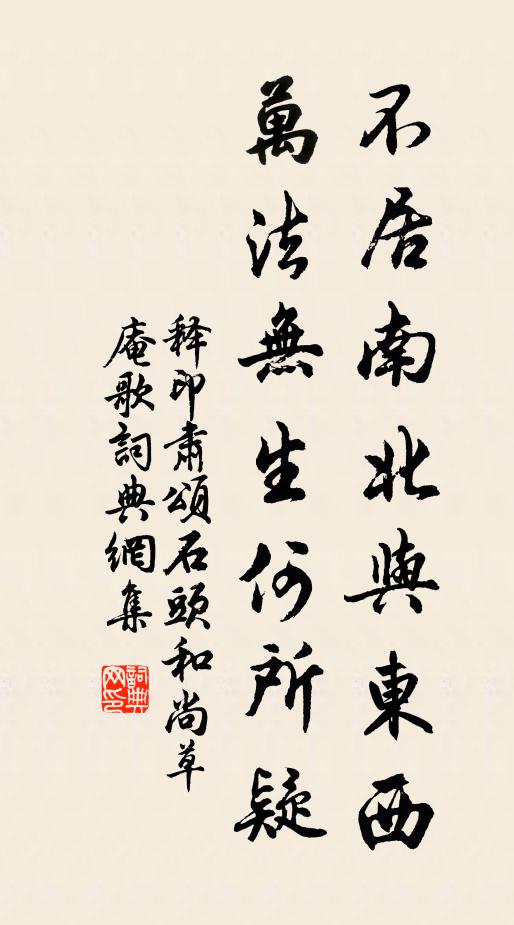 不居南北與東西
萬法無生何所疑
释印肅頌石頭和尚草
庵歌詞典網集
詞典
网印